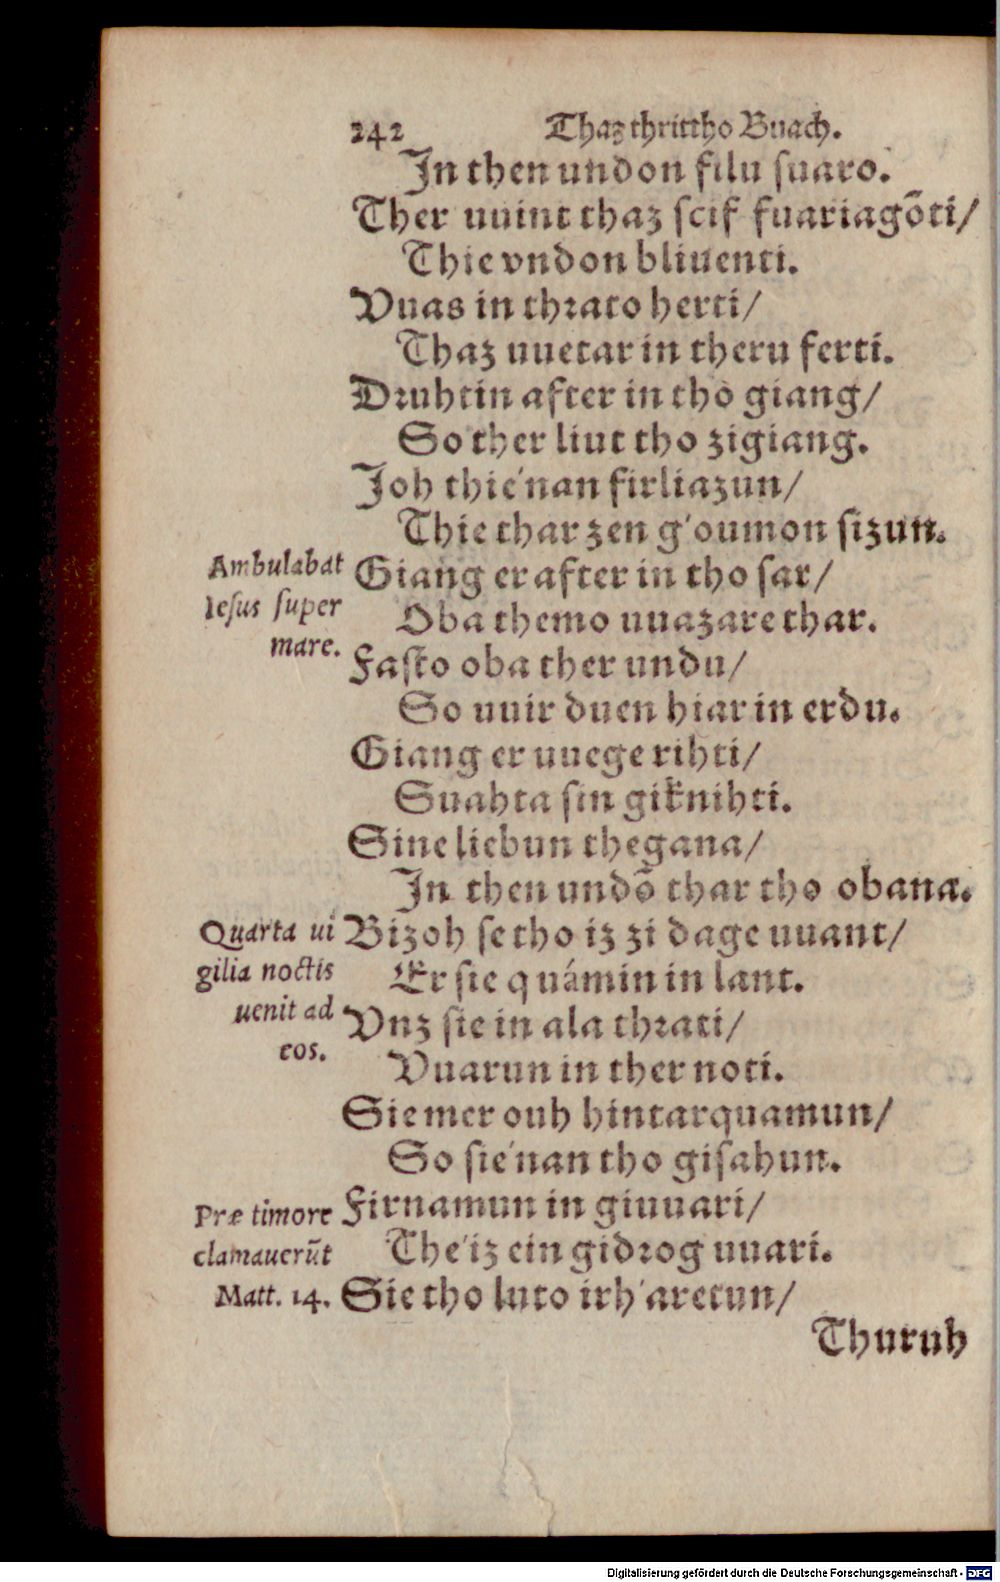 242 Thaz thrittho Buach.
In then undon filu suaro.
Ther uuint thaz scif fuariagōti/
Thie vndon bliuenti.
Vuas in thrato herti/
Thaz uuetar in theru ferti.
Druhtin after in tho giang/
So ther liut tho zigiang.
Joh thie'nan firliazun/
Thie thar zen g'oumon sizun.
Ambulabat
Iesus super
mare.
Giang er after in tho sar/
Oba themo uuazare thar.
Fasto oba ther undu/
So uuir duen hiar in erdu.
Giang er uuege rihti/
Suahta sin giknihti.
Sine liebun thegana/
In then undō thar tho obana.
Quarta ui
gilia noctis
uenit ad
eos.
Bizoh se tho iz zi dage uuant/
Er sie quámin in lant.
Vnz sie in ala thrati/
Vuarun in ther noti.
Sie mer ouh hintarquamun/
So sie'nan tho gisahun.
Præ timore
clamauerūt
Matt. 14.
Firnamun in giuuari/
The'iz ein gidrog uuari.
Sie tho luto irh'aretun/
Thuruh
Digitalisierung gefördert durch die Deutsche Forschungsgemeinschaft - DFG